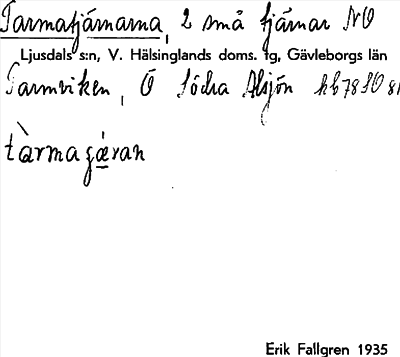 Tarmatjärnarna, 2 små tjärnar NO
Ljusdals s:n, V. Hälsinglands doms. tg, Gävleborgs län
Tarmviken, Ö Södra Alsjön kb 78 SO 81
tàrmagǽran
Erik Fallgren 1935